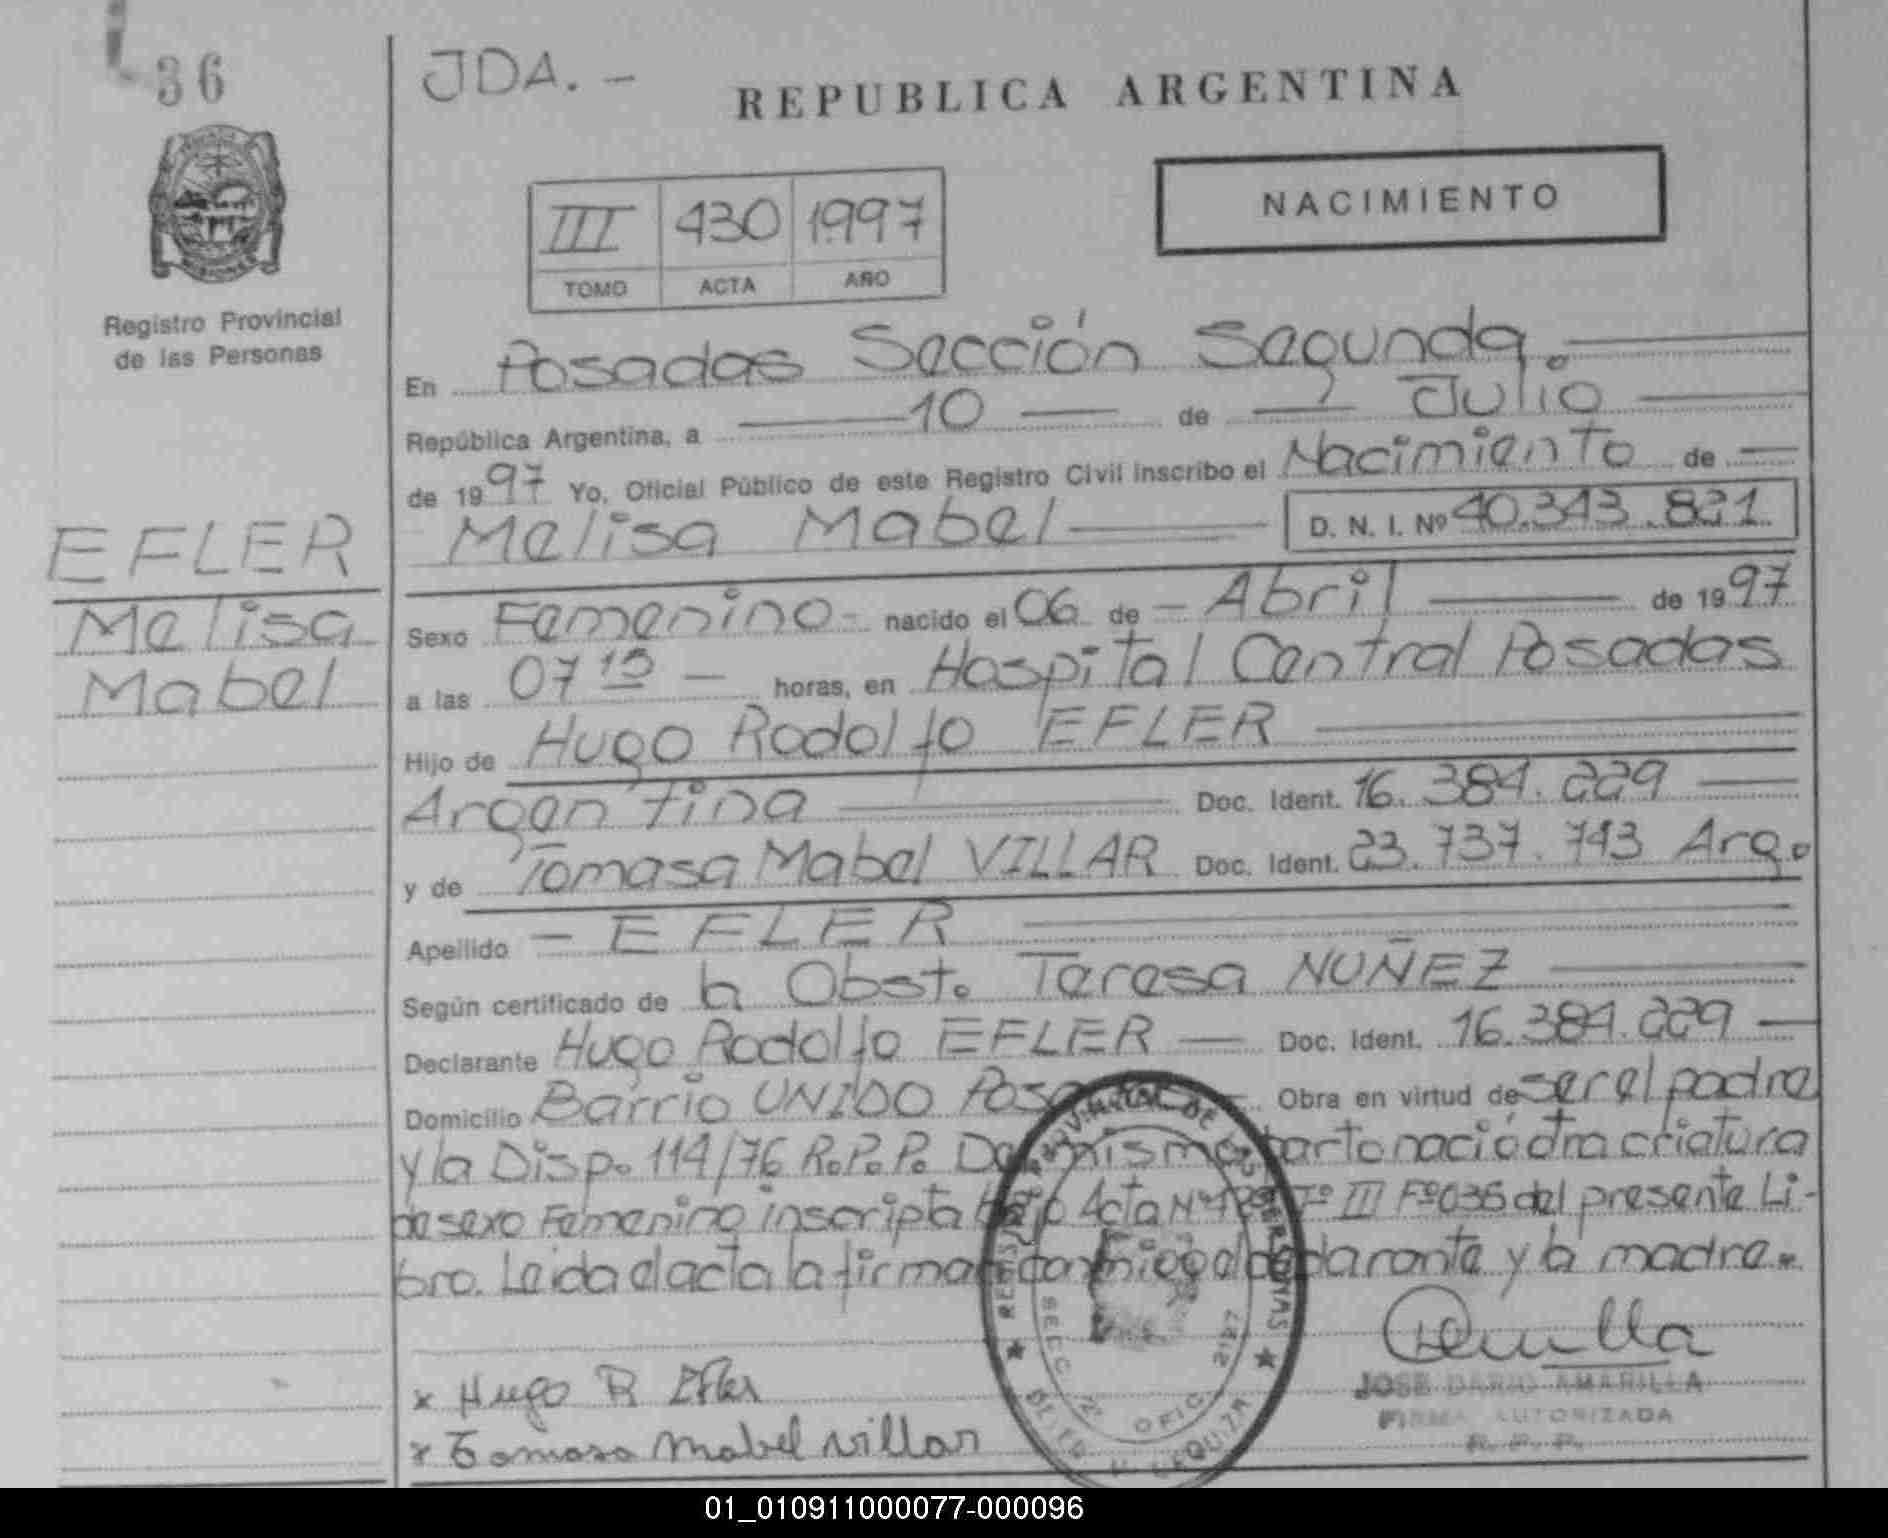 36
JDA. -
REPUBLICA ARGENTINA
NACIMIENTO
III 430 1997
TOMO ACTA AÑO
MISIONES
Registro Provincial
de las Personas
En Posadas Sección Segunda.
República Argentina, a 10 de Julio
de 1997 Yo, Oficial Público de este Registro Civil inscribo el Nacimiento de
Melisa Mabel D. N. I. Nº 40.343.821
EFLER
Melisa
Mabel
Sexo Femenino - nacido el 06 de - Abril de 1997
a las 07 15 - horas, en Hospital Central Posadas
Hijo de Hugo Rodolfo EFLER
Argentina Doc. Ident. 16.384.229
y de Tomasa Mabel VILLAR Doc. Ident. 23.737.743 Arg.
Apellido - EFLER
Según certificado de la Obst. Teresa NUÑEZ
Declarante Hugo Rodolfo EFLER Doc. Ident. 16.384.229
Domicilio Barrio UNIDO Posadas Obra en virtud de ser el padre
y la Disp. 114/76 R.P.P. Del mismo parto nació otra criatura
de sexo Femenino inscripta bajo Acta Nº Tº III Fº 036 del presente Li-
bro. Leida el acta la firman conmigo el declarante y la madre.
REGISTRO PROVINCIAL DE LAS PERSONAS
SECC. 2ª OFIC. 2127
JOSE DARIO AMARILLA
FIRMA AUTORIZADA
R. P. P.
x Hugo R Efler
x Tomasa Mabel Villar
01_010911000077-000096